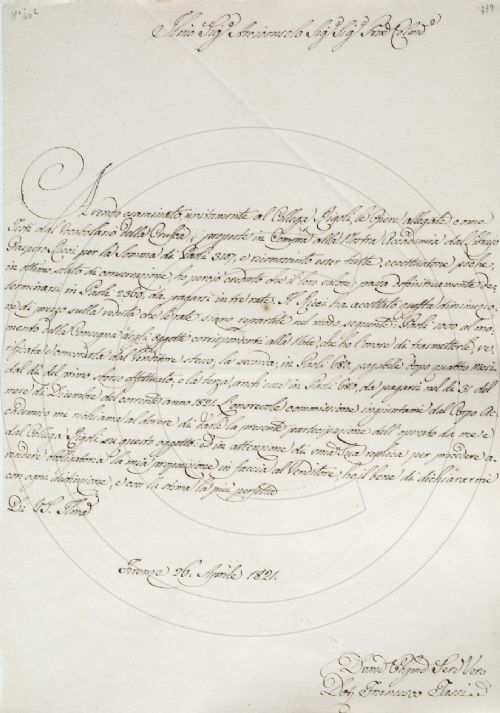 Illmo Sigr Arciconsolo Sigr Sigr Pron Colmo
Avendo esaminato, unitamente al Collega Rigoli, le Opere allegate come
Testi dal Vocabolario della Crusca, proposte in Compra alla Nostra Accademia dal
Gaspero Ricci per la Somma di Paoli e riconosciute esser tutte, eccettuatone poche,
in ottimo stato di conservazione, ho perciò creduto che il loro valore possa definitivamente de-
terminarsi in Paoli 2300, da pagarsi in tre rate. Il Ricci ha accettato questa diminuzio-
ne di prezzo sulla veduta che le rate siano repartite nel modo seguente: Paoli 1000 al mo-
mento della Consegna degli oggetti corrispondenti alla Nota, che ho l'onore di trasmetterle, ve-
rificata e firmata dal Venditore stesso, la seconda, in Paoli 650, pagabile dopo quattro Mesi
dal dì del primo sborso effettuato, e la terza, anch'essa in Paoli 650, da pagarsi nel dì 31 del
mese di Dicembre del corrente anno 1821. L'onorevole commissione ingiuntami dal Corpo Ac-
cademico mi richiama al dovere di darle la presente partecipazione dell'operato da me e
dal Collega Rigoli su questo oggetto. Ed in attenzione di una Sua replica per procedere a
rendere obbligatoria la mia proposizione in faccia al Venditore, ho il bene di dichiararmi
con ogni distinzione, e con la stima la più perfetta
Di VS. Illma
Firenze 26. Aprile 1821.
Devmo Obbmo Serv Vero
Dott Francesco